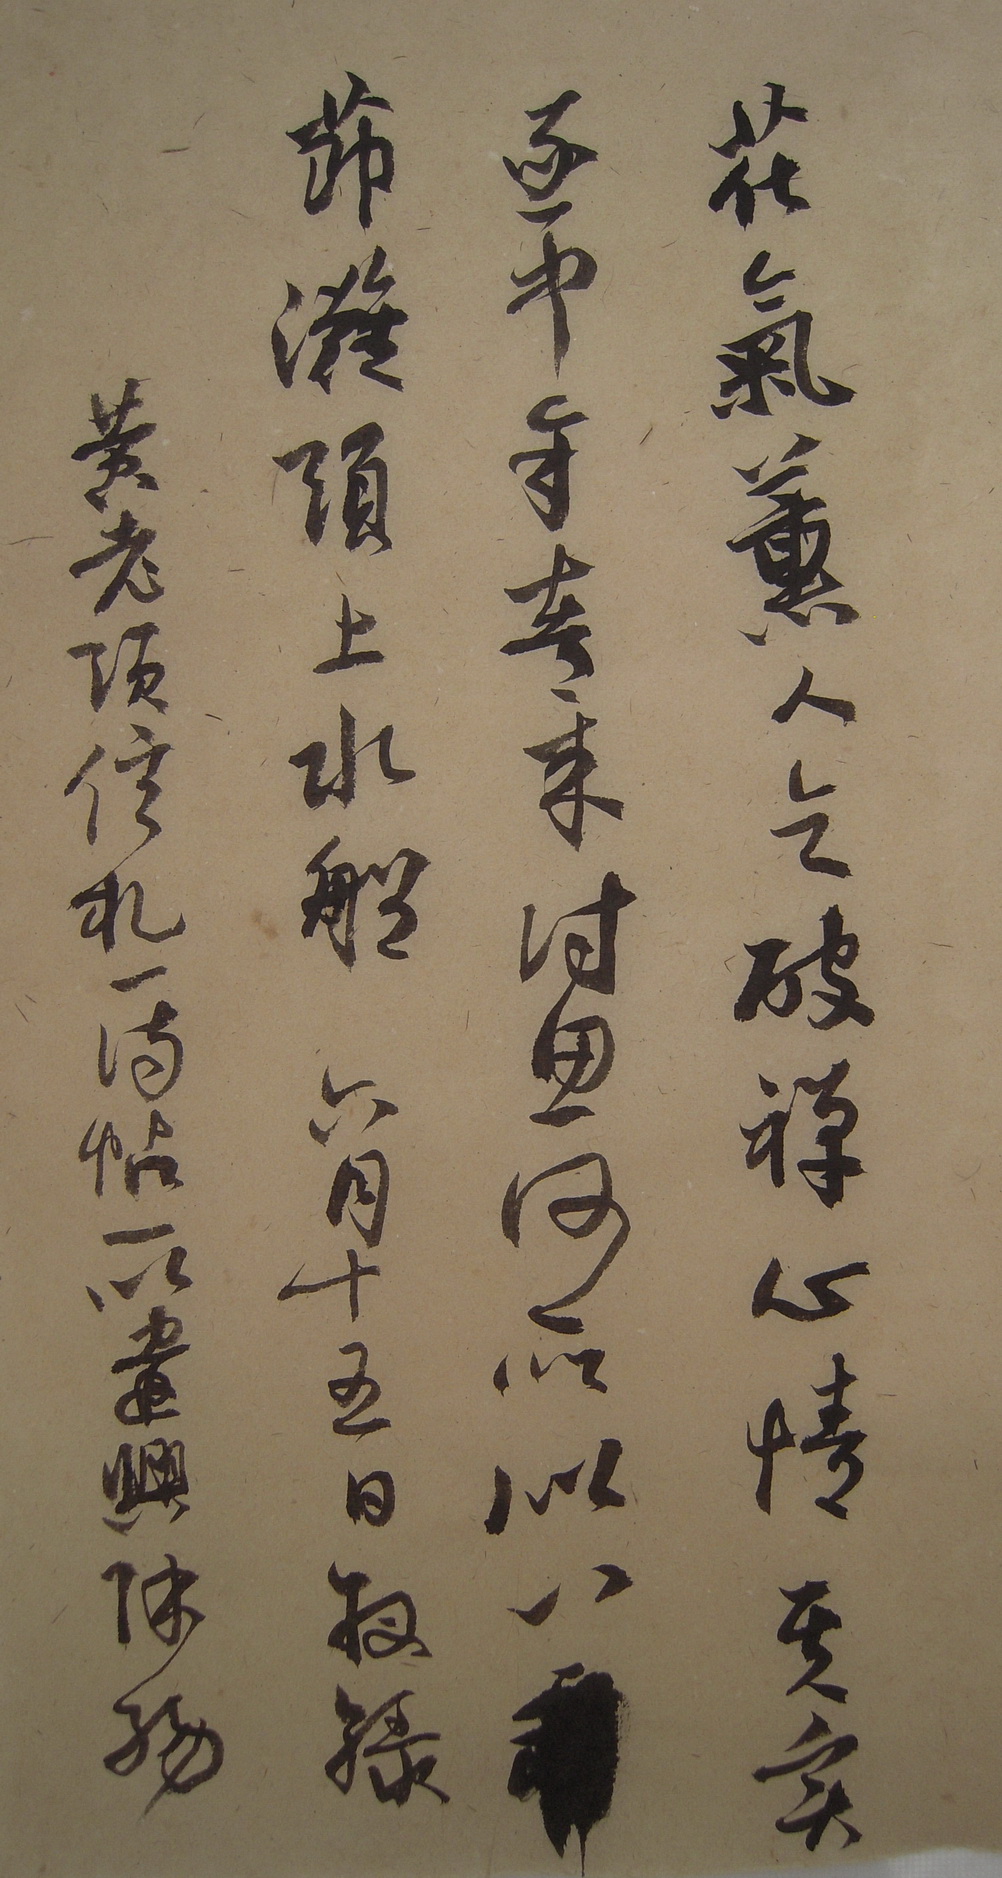 花氣薰人欲破禪心情其實
過中年春來詩思何所似八
節灘頭上水船 六月十五日
黃老 信札一 帖 以 興